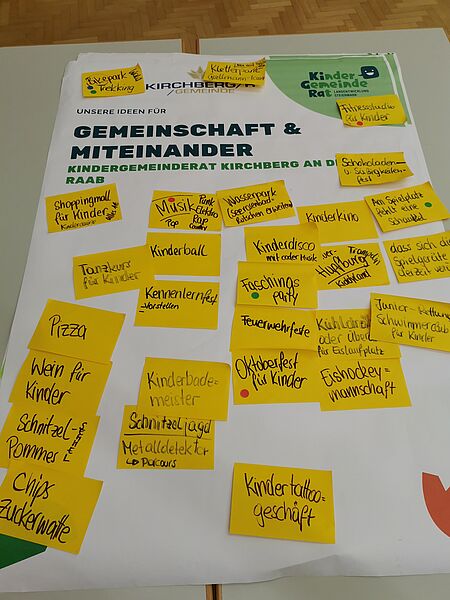 Bikepark
Trekking
Kletterpark
KIRCHBERG/R
GEMEINDE
Kinder
Gemeinde
Rat
LANDENTWICKLUNG
STEIERMARK
UNSERE IDEEN FÜR
GEMEINSCHAFT &
MITEINANDER
KINDERGEMEINDERAT KIRCHBERG AN DE
RAAB
Fitnessstudio
für Kinder
Schokoladen-
u. Süßigkeiten-
fest
Shoppingmall
für Kinder
Musik
Punk
Elektro
Pop
Rap
Country
Wasserpark
Rutschen erweitern
Kinderkino
Am Spielplatz
fehlt eine
Schaukel
Kinderball
Kinderdisco
mit cooler Musik
Hüpfburg
dass sich die
Spielgeräte
Tanzkurs
für Kinder
Kennenlernfest
-Vorstellen
Faschings
party
Feuerwehrfeste
oder
für Eislaufplatz
Junior-Rettung
Schwimmerclub
für Kinder
Pizza
Wein für
Kinder
Kinderbade=
meister
Oktoberfest
für Kinder
Eishockey=
mannschaft
Schnitzel-
Pommes
Schnitzeljagd
Metalldetektor
Parcours
Chips
Zuckerwatte
Kindertattoo=
geschäft